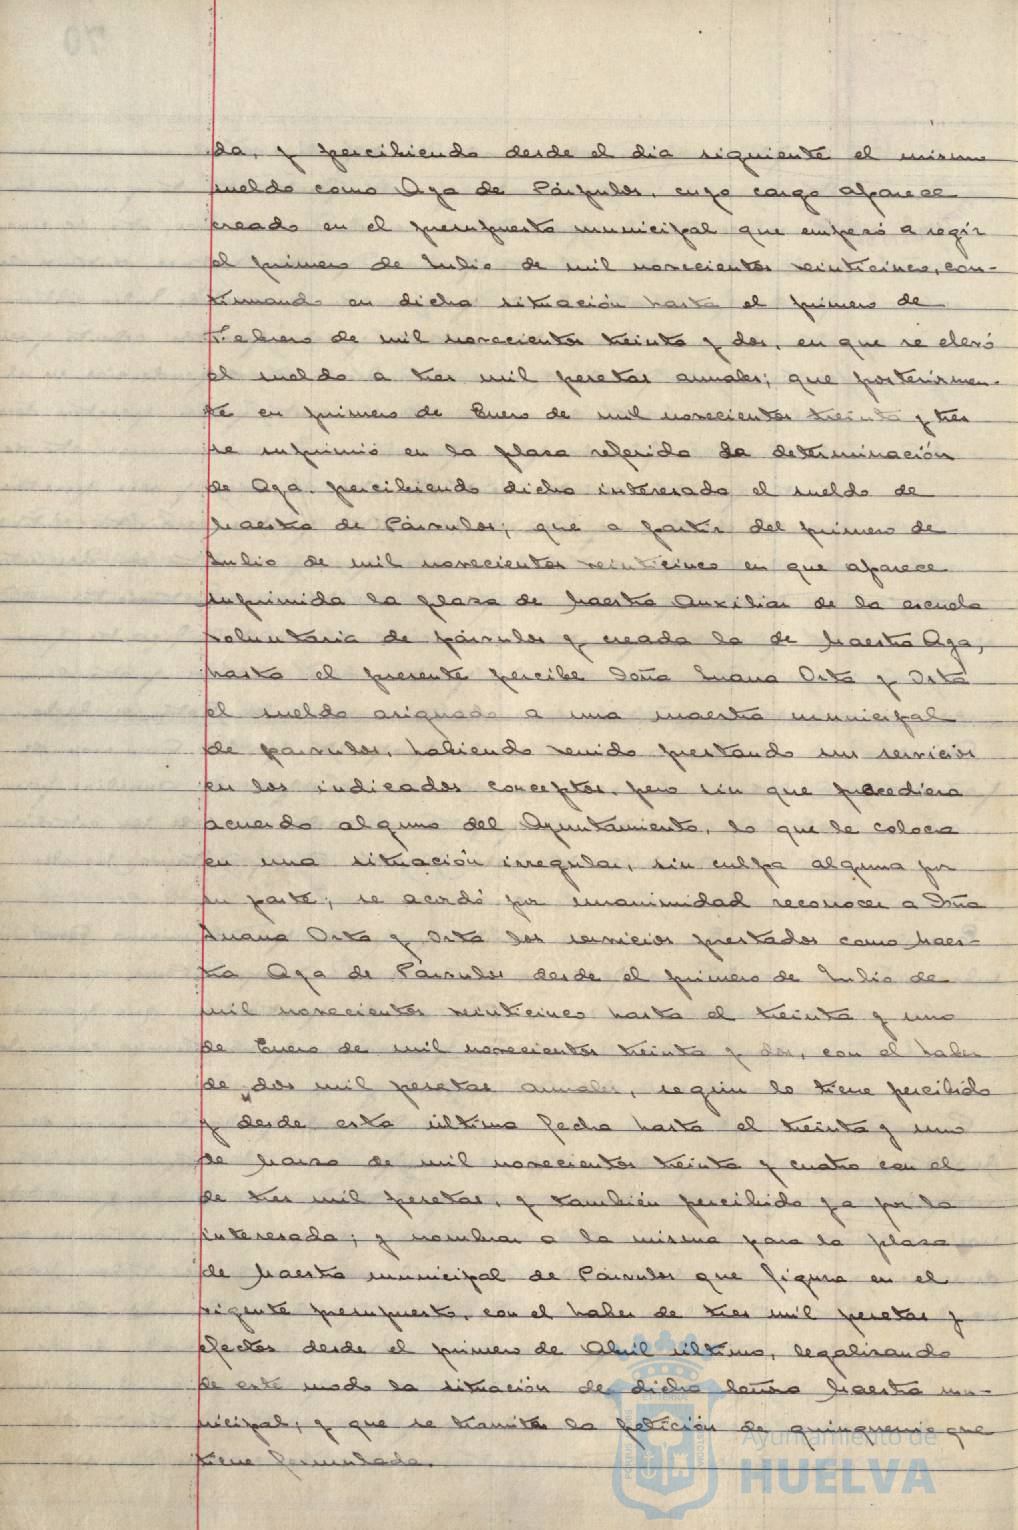 da, y percibiendo desde el dia siguiente el mismo
sueldo como Aya de Párvulos, cuyo cargo aparece
creado en el presupuesto municipal que empezó a regir
el primero de Julio de mil novecientos veinticinco, con-
tinuando en dicha situación hasta el primero de
Febrero de mil novecientos treinta y dos, en que se elevó
el sueldo a tres mil pesetas anuales; que posteriormen-
te en primero de Enero de mil novecientos treinta y tres
se suprimió en la plaza referida la determinación
de Aya, percibiendo dicha interesada el sueldo de
Maestra de Párvulos; que a partir del primero de
Julio de mil novecientos veinticinco en que aparece
suprimida la plaza de Maestra Auxiliar de la escuela
voluntaria de párvulos y creada la de Maestra Aya,
hasta el presente percibe Doña Juana Orta y Orta
el sueldo asignado a una maestra municipal
de párvulos, habiendo venido prestando sus servicios
en los indicados conceptos, pero sin que procediera
acuerdo alguno del Ayuntamiento, lo que le coloca
en una situación irregular, sin culpa alguna por
su parte; se acordó por unanimidad reconocer a Doña
Juana Orta y Orta los servicios prestados como Maes-
tra Aya de Párvulos desde el primero de Julio de
mil novecientos veinticinco hasta el treinta y uno
de Enero de mil novecientos treinta y dos, con el haber
de dos mil pesetas anuales, según lo tiene percibido
y desde esta última fecha hasta el treinta y uno
de Marzo de mil novecientos treinta y cuatro con el
de tres mil pesetas, y también percibido ya por la
interesada; y nombrar a la misma para la plaza
de Maestra municipal de Párvulos que figura en el
vigente presupuesto, con el haber de tres mil pesetas y
efectos desde el primero de Abril último, legalizando
de este modo la situación de dicha señora Maestra mu-
nicipal; y que se tramite la petición de quinquenio que
tiene formulada.
Ayuntamiento de
HUELVA